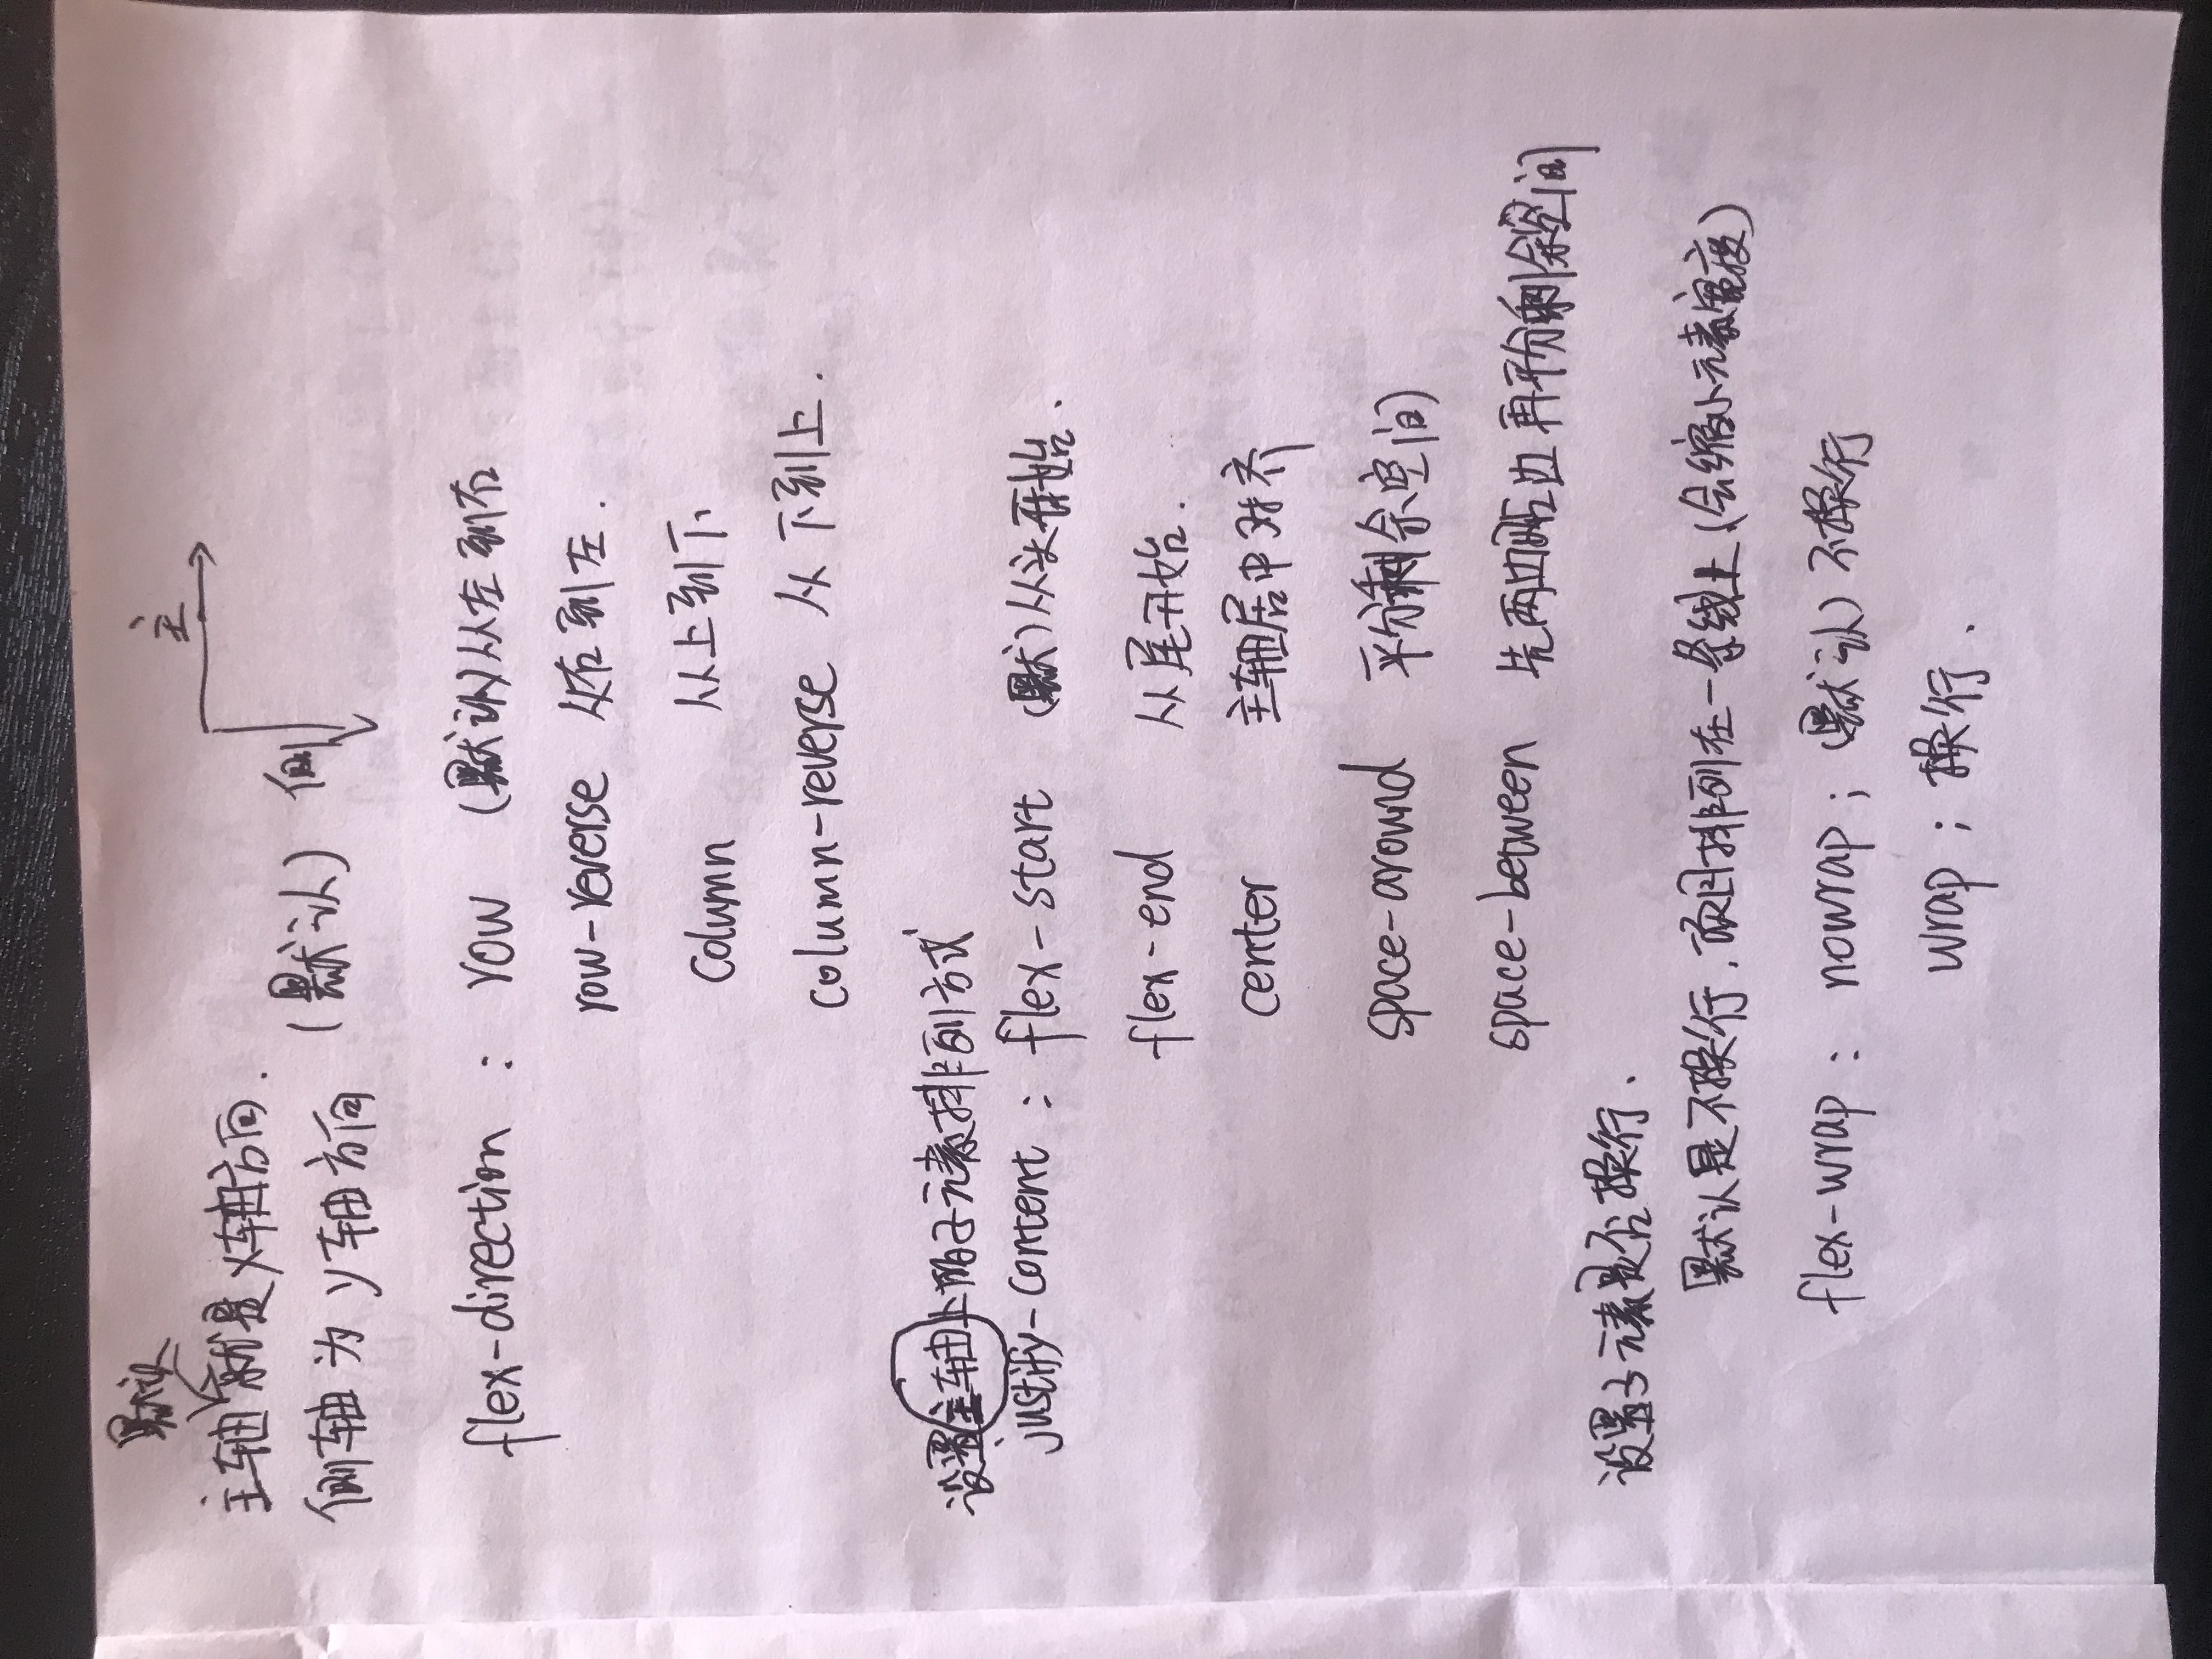 默认
主轴就是x轴方向.
侧轴为y轴方向 (默认)
主
侧
flex-direction : row (默认)从左到右
row-reverse 从右到左.
column 从上到下
column-reverse 从下到上.
设置主轴上的子元素排列方式
justify-content : flex-start (默)从头开始.
flex-end 从尾开始.
center 主轴居中对齐
space-around 平分剩余空间
space-between 先两边贴边再平分剩余空间
设置子元素是否换行.
默认是不换行,项目排列在一条线上(会缩小元素宽度)
flex-wrap : nowrap ; (默认) 不换行
wrap ; 换行.